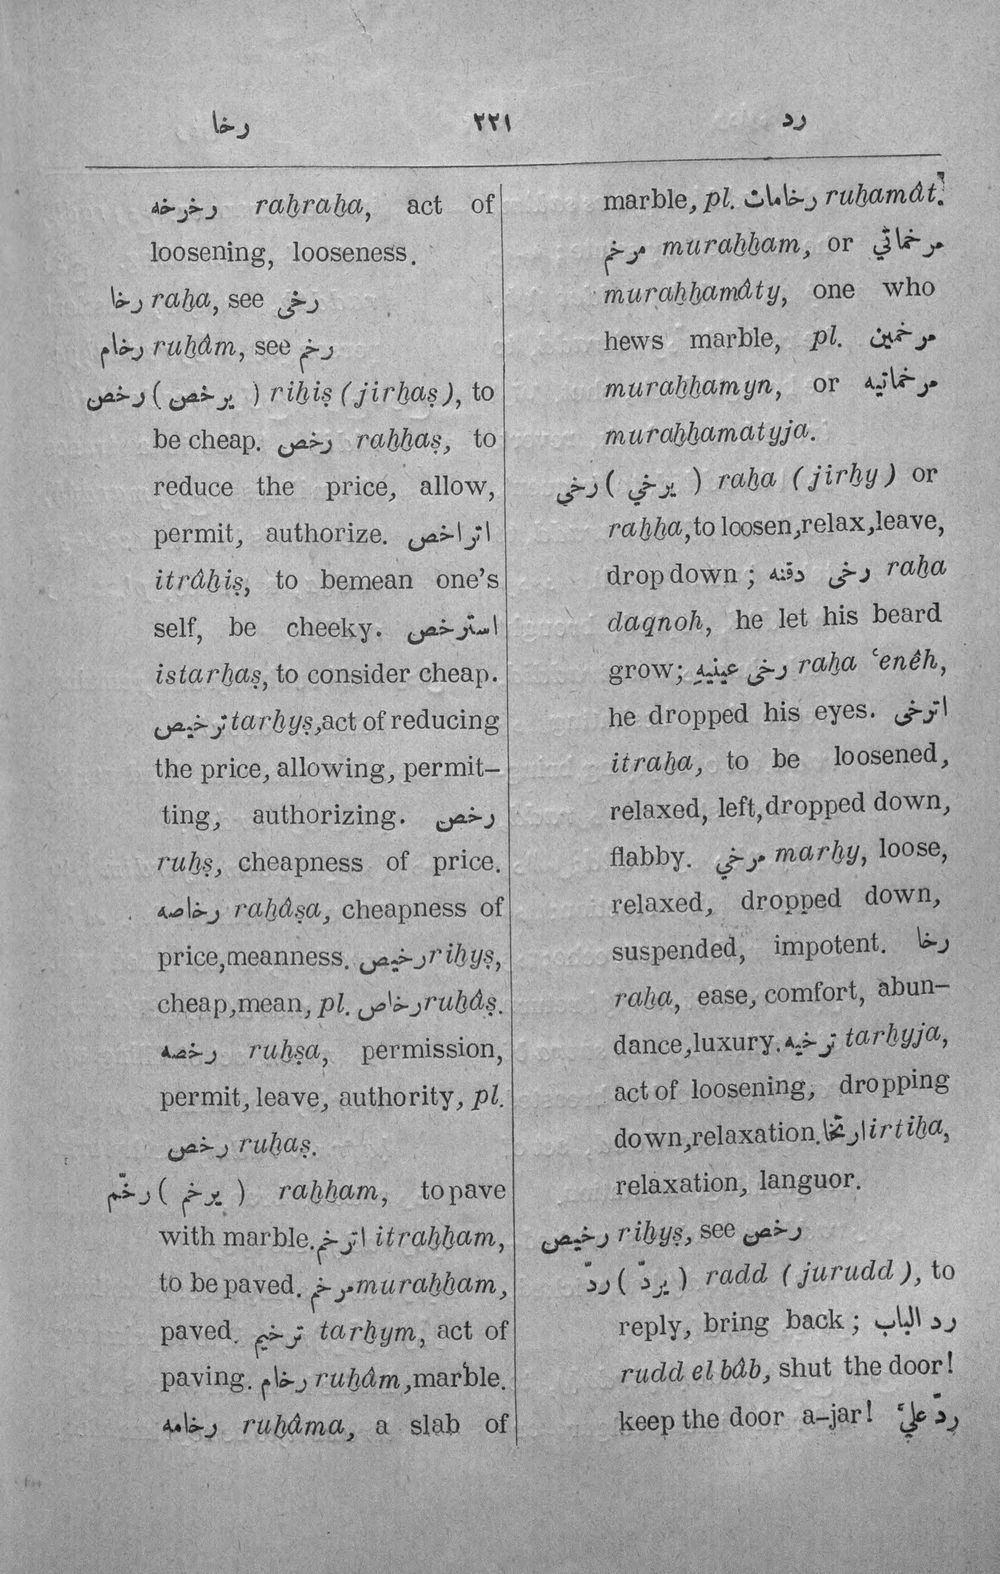 رخا ٢٢١ رد
رخرخه raẖraẖa, act of
loosening, looseness.
رخا raẖa, see رخى
رخام ruẖâm, see رخم
رخص (يرخص) riẖiṣ (jirẖaṣ), to
be cheap. رخص raẖẖaṣ, to
reduce the price, allow,
permit, authorize. اتراخص
itrâẖiṣ, to bemean one's
self, be cheeky. استرخص
istarẖaṣ, to consider cheap.
ترخيص tarẖyṣ, act of reducing
the price, allowing, permit–
ting, authorizing. رخص
ruẖṣ, cheapness of price.
رخاصه raẖâṣa, cheapness of
price, meanness. رخيص riẖyṣ,
cheap, mean, pl. رخاص ruẖâṣ.
رخصه ruẖṣa, permission,
permit, leave, authority, pl.
رخص ruẖaṣ.
رخّم (يرخم) raẖẖam, to pave
with marble. اترخم itraẖẖam,
to be paved. مرخم muraẖẖam,
paved. ترخيم tarẖym, act of
paving. رخام ruẖâm, marble.
رخامه ruẖâma, a slab of
marble, pl. رخامات ruẖamât.
مرخم muraẖẖam, or مرخماتي
muraẖẖamâty, one who
hews marble, pl. مرخمين
muraẖẖamyn, or مرخماتيه
muraẖẖamatyja.
رخي (يرخي) raẖa (jirẖy) or
raẖẖa, to loosen, relax, leave,
drop down; رخى دقنه raẖa
daqnoh, he let his beard
grow; رخى عينيهِ raẖa ‘enêh,
he dropped his eyes. اترخى
itraẖa, to be loosened,
relaxed, left, dropped down,
flabby. مرخي marẖy, loose,
relaxed, dropped down,
suspended, impotent. رخا
raẖa, ease, comfort, abun–
dance, luxury. ترخيه tarẖyja,
act of loosening, dropping
down, relaxation. ارتخا irtiẖa,
relaxation, languor.
رخيص riẖyṣ, see رخص
ردّ (يردّ) radd (jurudd), to
reply, bring back; رد الباب
rudd el bâb, shut the door!
keep the door a–jar! ردّ عليَّ